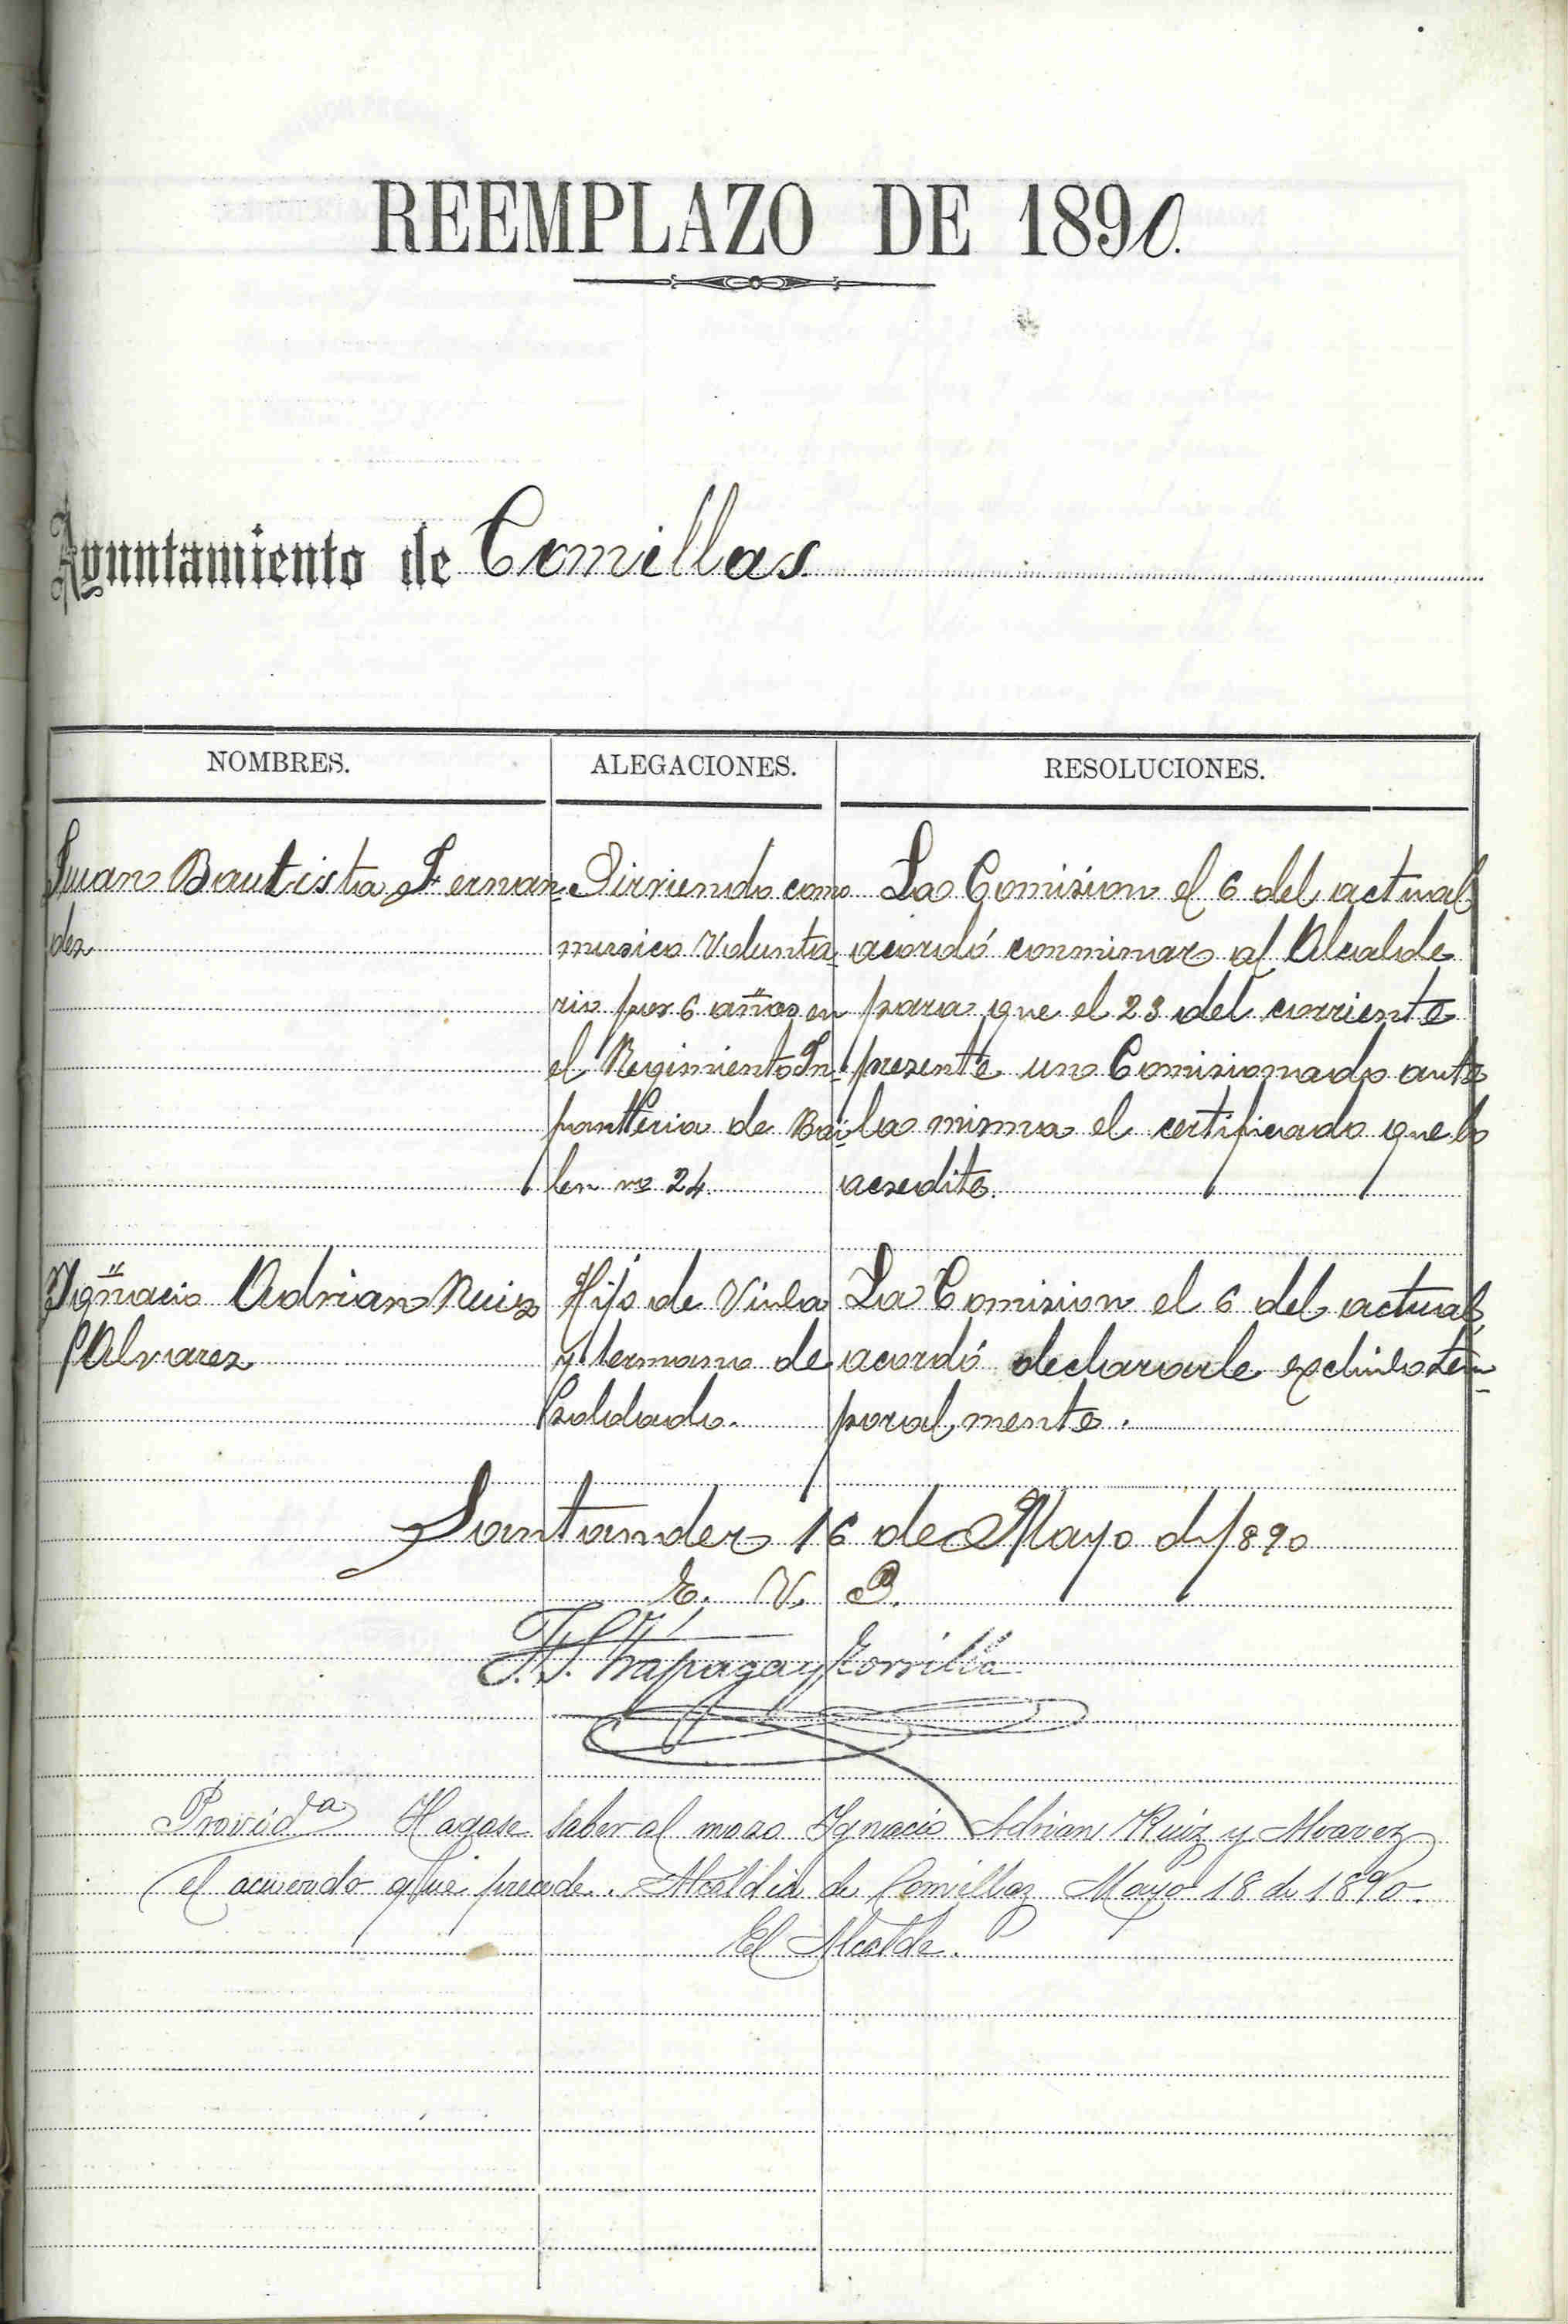 REEMPLAZO DE 1890.
Ayuntamiento de Comillas
NOMBRES. ALEGACIONES. RESOLUCIONES.
Juan Bautista Fernan- Sirviendo como La Comision el 6 del actual
dez musico Volunta- acordó conminar al Alcalde
rio por 6 años en para que el 23 del corriente
el Regimiento In- presente un Comisionado ante
fanteria de Bai- la misma el certificado que lo
len no 24. acredite.
Ignacio Adrian Ruiz Hijo de Viuda La Comision el 6 del actual,
Alvarez y hermano de acordó declararle excluido tem-
soldado. poralmente.
Santander 16 de Mayo de 1890
E. V. P.
Zorrilla
Provida Hagase saber al mozo Ignacio Adrian Ruiz y Alvarez
el acuerdo que precede. Alcaldia de Comillas Mayo 18 de 1890.
El Alcalde.